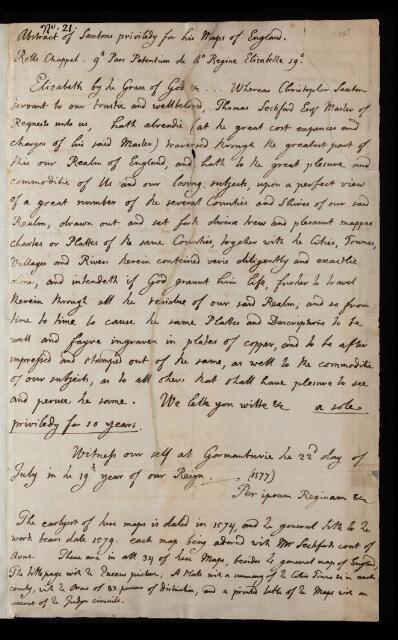 No. 21.
Abstract of Saxtons priviledg for his Maps of England.
Rolls Chappel. 9a Pars Patentium de Ao Regine Elizabethe 19o.
Elizabeth by the Grace of God &c. ... Whereas Christopher Saxton
servant to our trustie and wellbeloved, Thomas Seckford Esqr Master of
Requests unto us, hath alreadie (at the great cost expences and
charges of his said Master) traversed through the greatest part of
this our Realm of England, and hath to the great plesure and
commoditie of Us and our loving subjects, upon a perfect view
of a great number of the several Counties and Shires of our said
Realm, drawn out and set forth divers trew and plesaunt mappes
chartes or Plattes of the same Counties, together with the Cities, Townes,
Villages and Rivers therein conteined verie diligently and exactlie
done, and intendeth if God graunt him life, further to travel
therein through all the residue of our said Realm; and so from
time to time to cause the same Plattes and Descriptions to be
well and fayre ingraven in plates of copper, and to be after
impressed and stamped out of the same, as well to the commoditie
of our subjects, as to all others that shall have plesure to see
and peruse the same. We lette you witte &c a sole
priviledg for 10 years.
Witness our self at Gormanburie the 22d day of
July in the 19th year of our Reign. (1577)
Per ipsam Reginam &c
The earlyest of these maps is dated in 1574, and the general title to the
work bears date 1579. each map being adorned with Mr Seckfords coat of
Arms. There are in all 34 of these Maps, besides the general map of England,
The title page with the Queens picture; A Plate with a summary of the Cities Towns &c in each
county, with the Arms of 83 persons of distinction, and a printed table of the Maps with an
account of the Judges circuits.